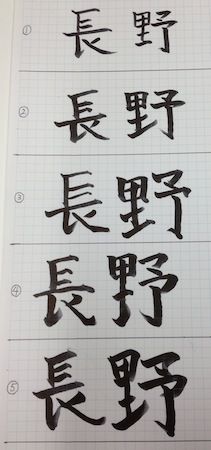 ① 長野
② 長野
③ 長野
④ 長野
⑤ 長野